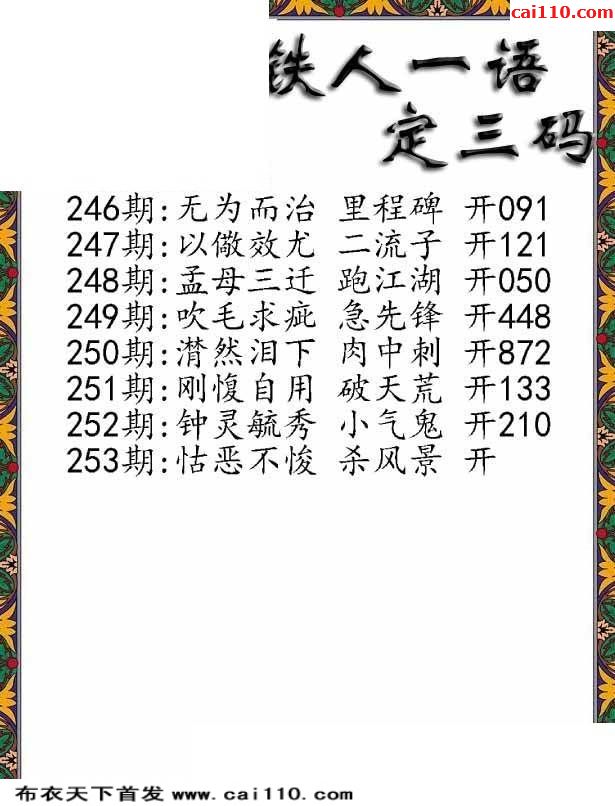 cai110.com
铁人一语
定三码
246期:无为而治 里程碑 开091
247期:以儆效尤 二流子 开121
248期:孟母三迁 跑江湖 开050
249期:吹毛求疵 急先锋 开448
250期:潸然泪下 肉中刺 开872
251期:刚愎自用 破天荒 开133
252期:钟灵毓秀 小气鬼 开210
253期:怙恶不悛 杀风景 开
布衣天下首发 www.cai110.com